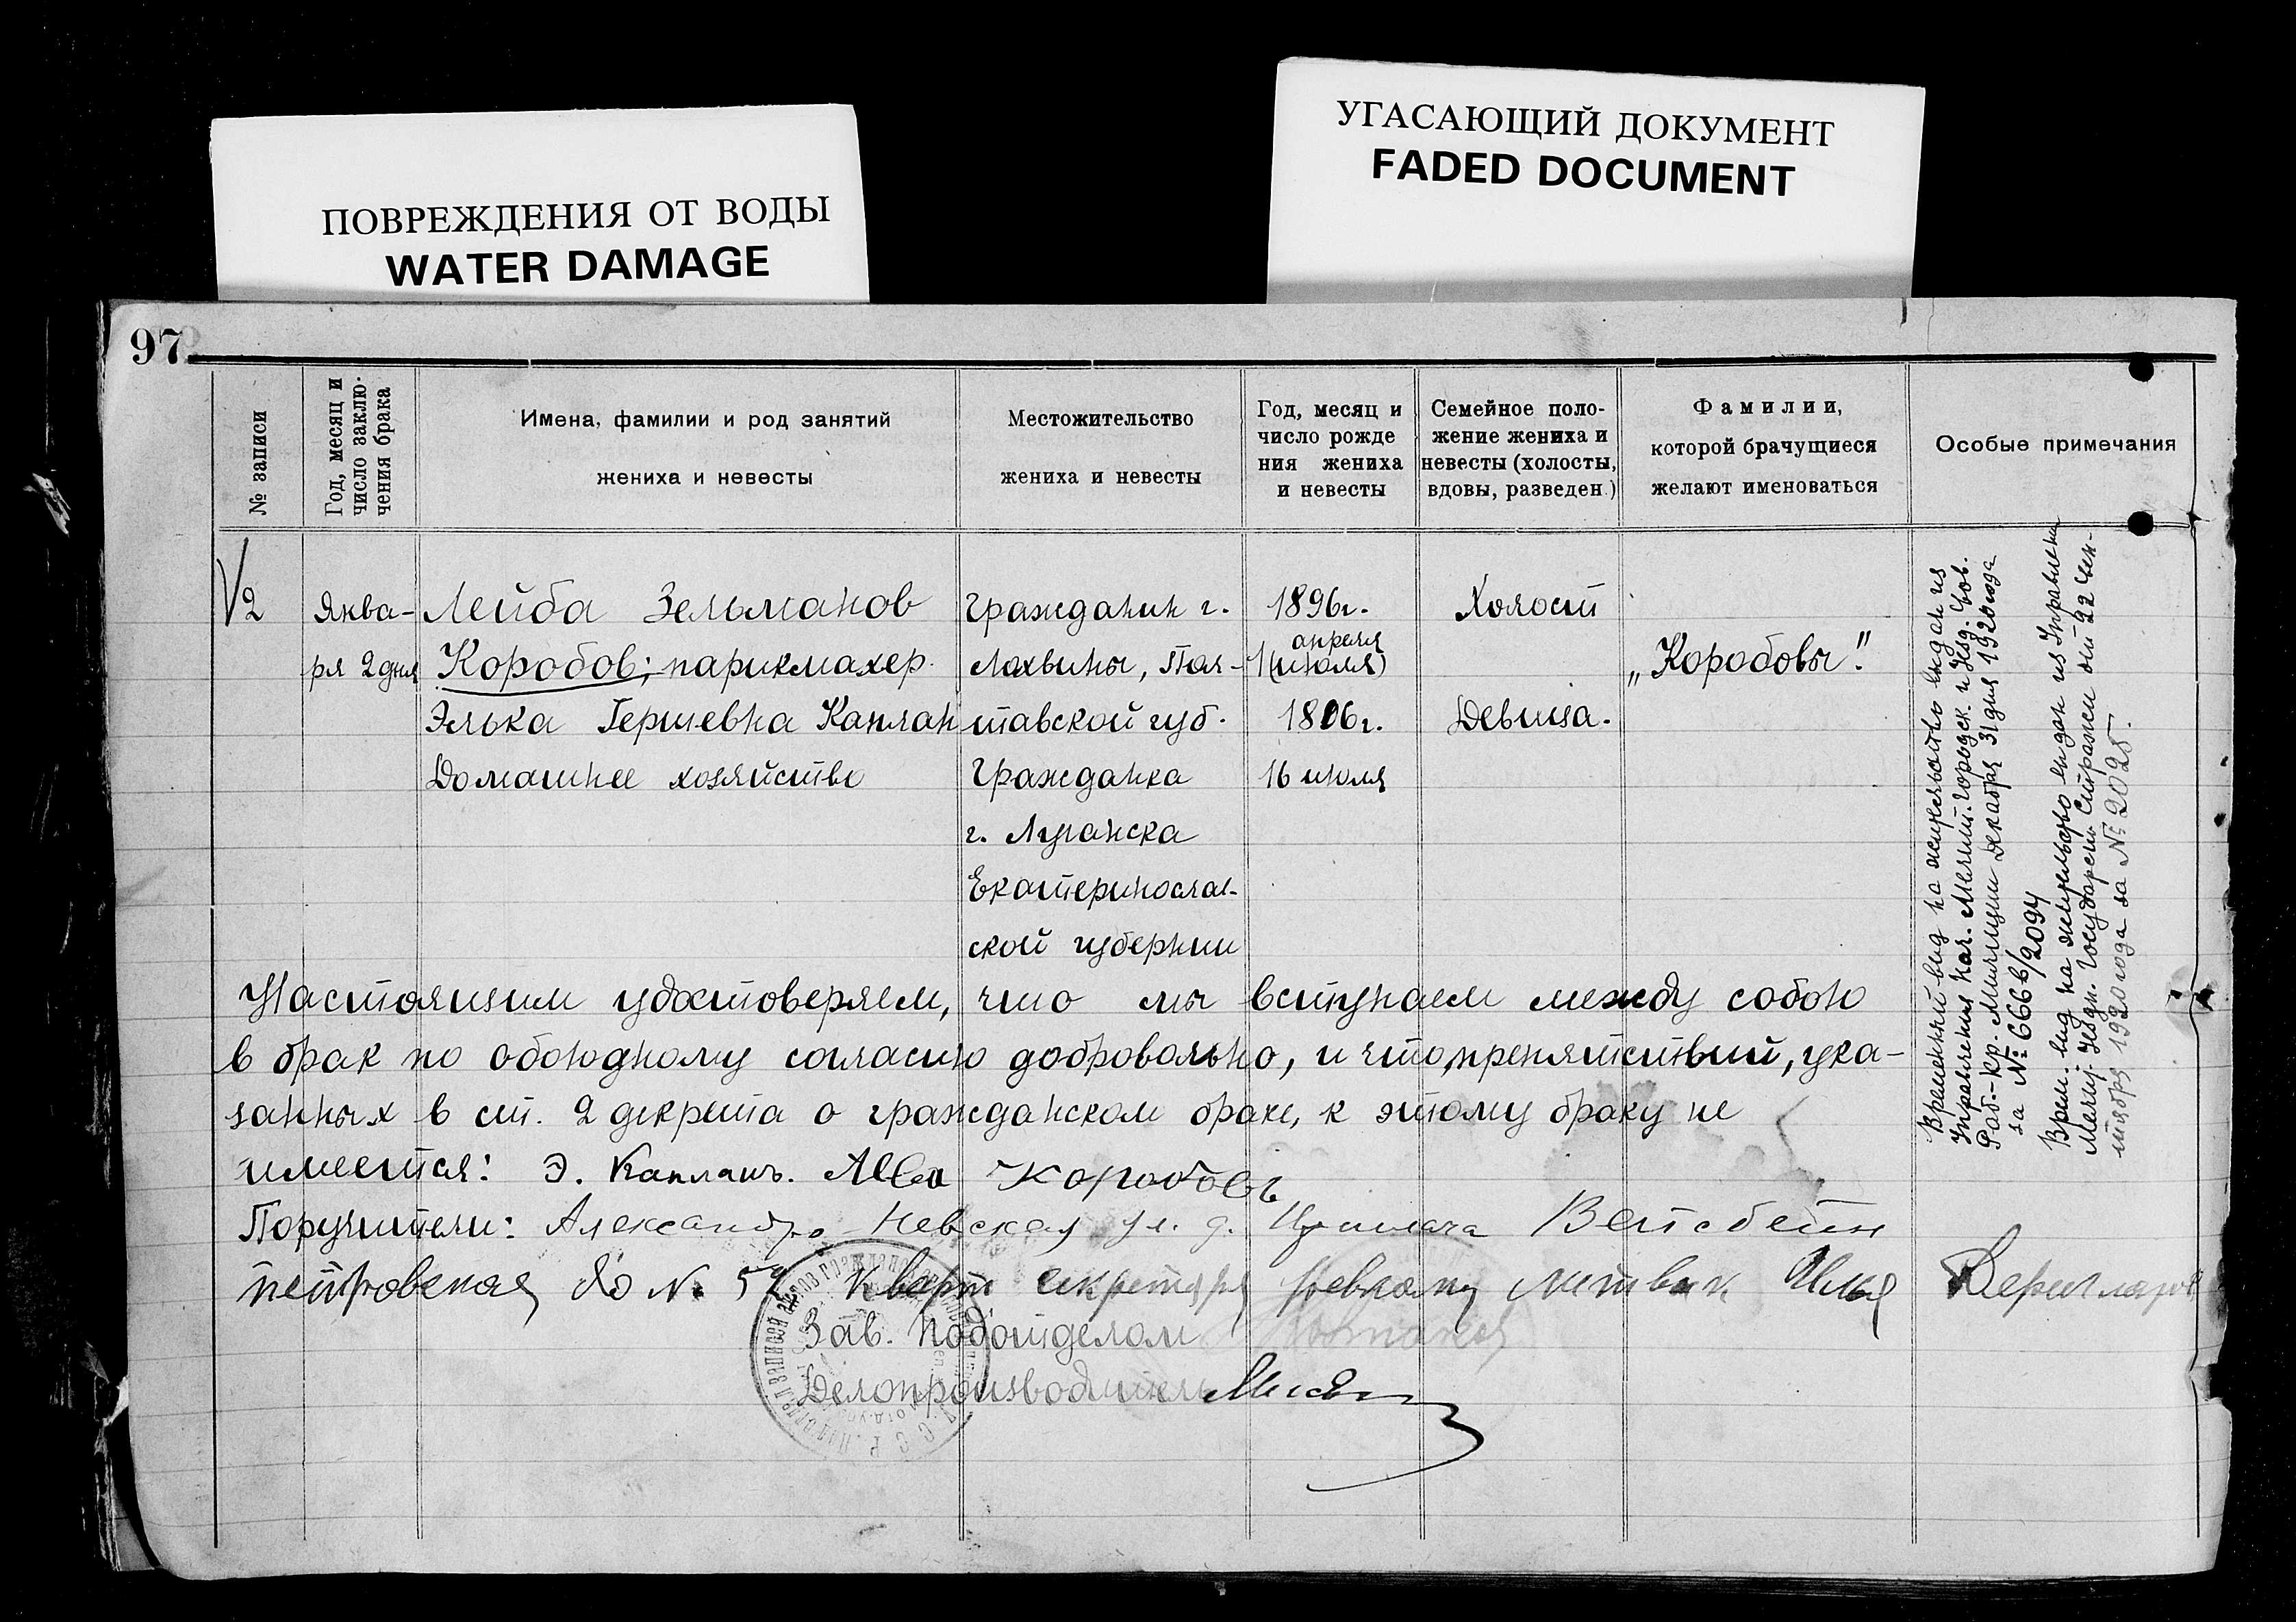 ПОВРЕЖДЕНИЯ ОТ ВОДЫ
WATER DAMAGE
УГАСАЮЩИЙ ДОКУМЕНТ
FADED DOCUMENT
97
№ записи
Год, месяц и
число заклю-
чения брака
Имена, фамилии и род занятий
жениха и невесты
Местожительство
жениха и невесты
Год, месяц и
число рожде
ния жениха
и невесты
Семейное поло-
жение жениха и
невесты (холосты,
вдовы, разведен.)
Фамилии,
которой брачущиеся
желают именоваться
Особые примечания
2
Янва-
ря 2 дня
Лейба Зельманов
Коробов; парикмахер.
Элька Гершевна Каплан
Домашнее хозяйство
Гражданин г.
Лохвицы, Пол-
тавской губ.
Гражданка
г. Луганска
Екатеринослав-
ской губернии
1896г.
апреля
1 (июля)
1896г.
16 июля
Холост
Девица.
„Коробовы".
Временный вид на жительство выдан из
Управления Нач. Мелит. городск. и Уезд. Сов.
Раб.-Кр. Милиции Декабря 31 дня 1920 года
за № 6666/2094
Врем. вид на жительство выдан из Управления
Мелит. Уездн. Государств. Стражи от 22 сен-
тября 1920 года за № 2025.
Настоящим удостоверяем, что мы вступаем между собою
в брак по обоюдному согласию добровольно, и что препятствий, ука-
занных в ст. 2 декрета о гражданском браке, к этому браку не
имеется: Э. Капланъ. Лейба Коробовъ
Поручители: Александро Невская ул. д. Вейсбейн
петровская № 57 Кварт секретаря Литвак Илья
Зав. Подотделом
Делопроизводитель